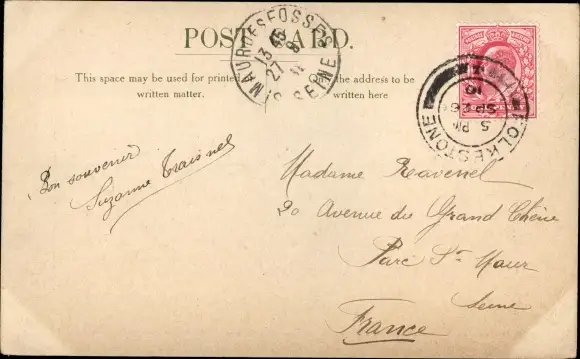 POST CARD.
ST MAUR DES FOSSES
13 45
27 8
SEINE
This space may be used for printed
written matter.
Only the address to be
written here
FOLKESTONE
5 PM
SP 26
10
Bon souvenir
Suzanne Traisnel
Madame Ravenel
20 Avenue du Grand Chêne
Parc St Maur
Seine
France